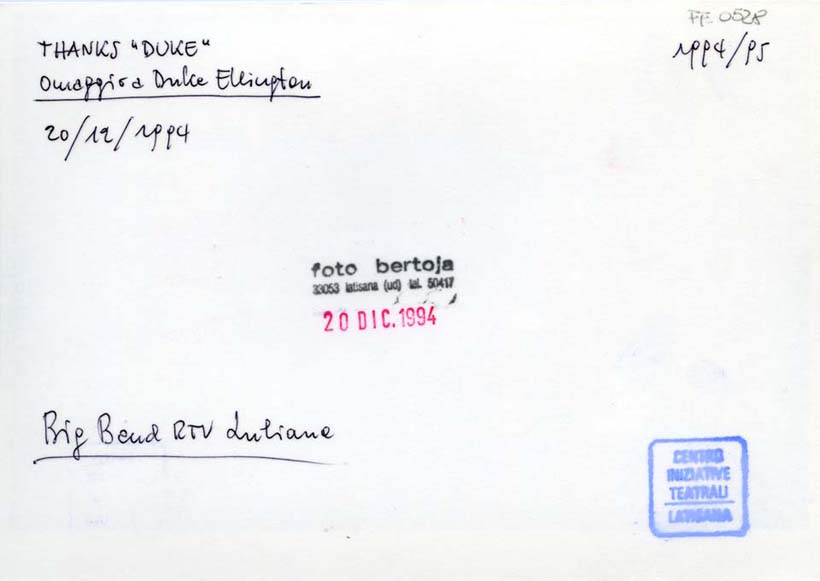 FF 0528
1994/95
THANKS "DUKE"
Omaggio a Duke Ellington
20/12/1994
foto bertoja
33053 latisana (ud) tel. 50417
20 DIC. 1994
Big Band RTV Lubiana
CENTRO
INIZIATIVE
TEATRALI
LATISANA